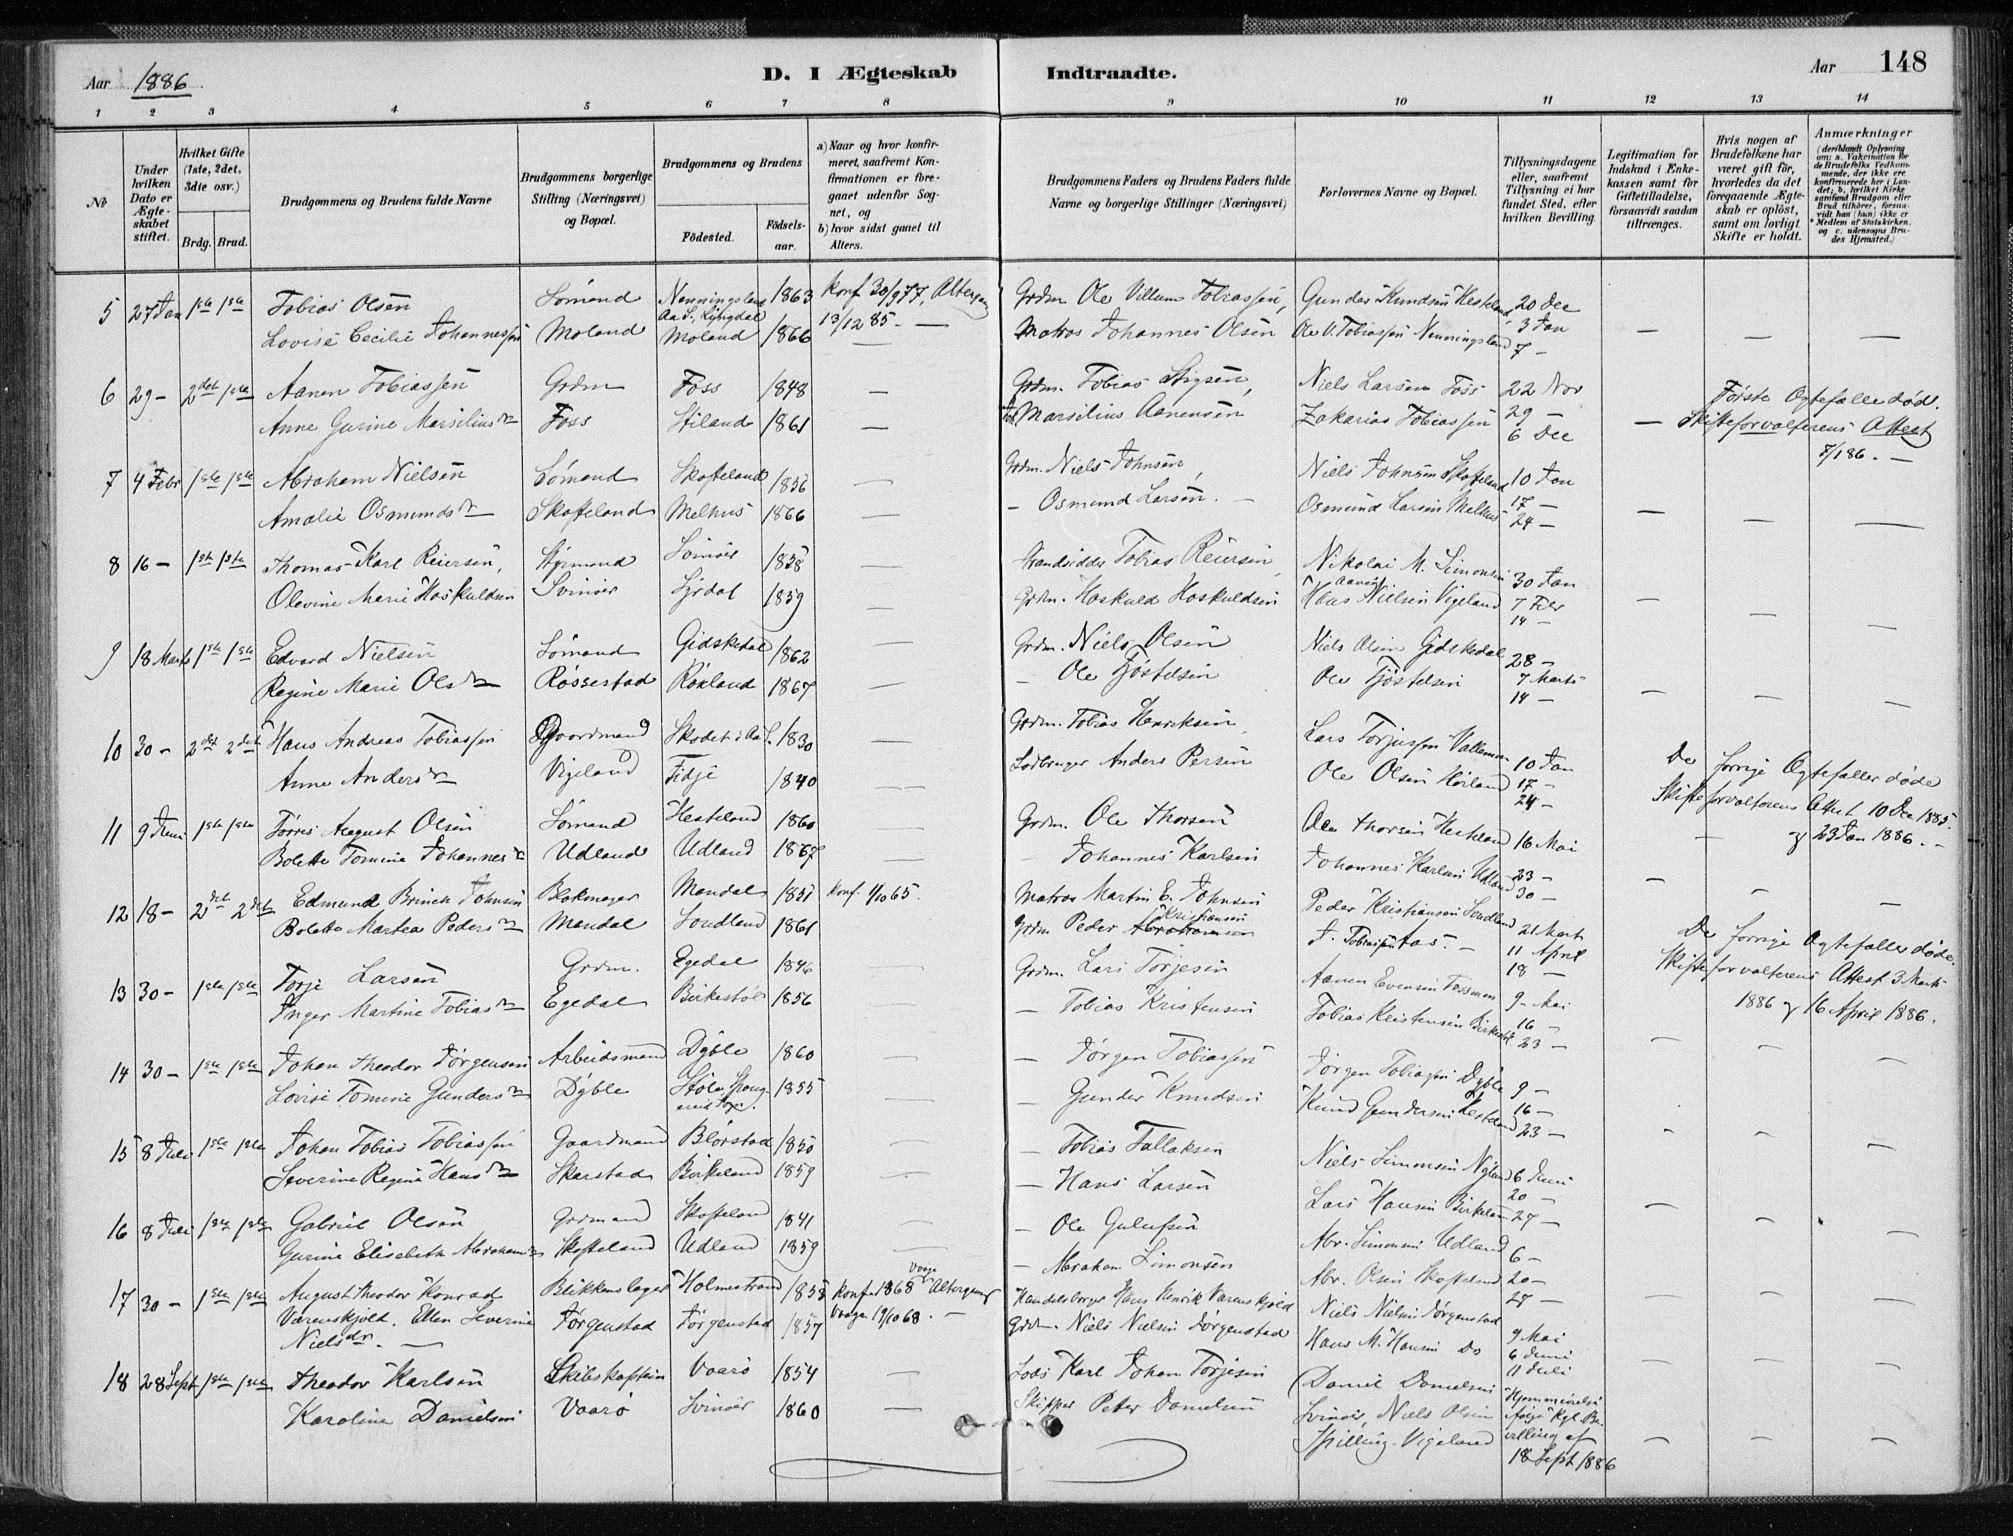 Aar 1886
D. I Ægteskab Indtraadte.
Aar 148
1 2 3 4 5 6 7 8 9 10 11 12 13 14
№
Under hvilken Dato er Ægteskabet stiftet.
Hvilket Gifte (1ste, 2det, 3die osv.)
Brdg. Brud.
Brudgommens og Brudens fulde Navne
Brudgommens borgerlige Stilling (Næringsvei) og Bopæl.
Brudgommens og Brudens
Födested. Födselsaar.
a) Naar og hvor konfirmeret, saafremt Konfirmationen er foregaaet udenför Sognet, og
b) hvor sidst gaaet til Alters.
Brudgommens Faders og Brudens Faders fulde Navne og borgerlige Stillinger (Næringsvei)
Forlovernes Navne og Bopæl.
Tillysningsdagene eller, saafremt Tillysning ei har fundet Sted, efter hvilken Bevilling.
Legitimation for Indskud i Enkekassen samt for Giftetilladelse, forsaavidt saadan tiltrænges.
Hvis nogen af Brudefolkene har været gift för, hvorledes da det foregaaende Ægteskab er oplöst, samt om lovligt Skifte er holdt.
Anmærkninger
5 27 Jan 1ste 1ste Tobias Olsen Sømand Nenningsland 1863 Konf 30/9 77, Altergang Grdm Ole Villum Tobiassen, Gunder Knudsen Hesteland, 20 Dec
Aa S., Lyngdal 13/12 85. —
Lovise Cecilie Johannessen Moland Moland 1866 — Matros Johannes Olsen Ole V. Tobiassen Nenningsland 3 Jan — — —
7 —
6 29 — 2det 1ste Aanen Tobiassen Grdm Foss 1848 — Grdm. Tobias Stigsen, Niels Larsen Foss 22 Nov Første Ægtefælle død.
Anne Gurine Marsiliusdr Foss Stiland 1861 — Marsilius Aanensen Zakarias Tobiassen 29 — — Skifteforvalterens Attest
6 Dec 7/1 86. —
7 4 Febr 1ste 1ste Abraham Nielsen Sømand Skofteland 1856 — Grdm. Niels Johnsen, Niels Johnsen Skofteland 10 Jan
Amalie Osmundsdr Skofteland Melhus 1866 — — Osmund Larsen. — Osmund Larsen Melhus 17 — — — —
24 —
8 16 — 1ste 1ste Thomas Karl Reiersen, Styrmand Svinør 1858 — Strandsidder Tobias Reiersen, Nikolai M. Simonsen
Olevine Marie Hoskuldsen Svinør Lyrdal 1859 — Grdm. Hoskuld Hoskuldsen Nielsen Vigeland 30 Jan — — —
7 Febr
14 —
9 18 Marts 1ste 1ste Edvard Nielsen Sømand Gidskedal 1862 — Grdm. Niels Olsen Niels Olsen Gidskedal 28 —
Regine Marie Olsdr Røssestad Røxland 1867 — — Ole Tjøstelsen Ole Tjøstelsen 7 Marts — — —
14 —
10 30 — 2det 2det Hans Andreas Tobiassen Gaardmand Skodet i Aa S. 1830 — Grdm. Tobias Henriksen Lars Torjussen Valleman 10 Jan De forrige Ægtefæller døde
Anne Andersdr Vigeland Fidje 1840 — — Lodbruger Anders Persen Ole Olsen Hørland 17 — Skifteforvalterens Attest 10 Dec 1885
24 — og 23 Jan 1886. —
11 9 Juni 1ste 1ste Tørres August Olsen Sømand Hesteland 1860 — Grdm. Ole Thorsen Ole Thorsen Hesteland 16 Mai —
Bolette Tomine Johannesdr Udland Udland 1867 — — Johannes Karlsen Johannes Karlsen Udland 23 — — — —
30 —
12 18 — 2det 2det Edmund Brinck Johnsen Blokmager Mandal 1851 Konf. 1/10 65. Matros Martin E. Johnsen Peder Kristiansen Sondland 21 Marts De forrige Ægtefæller døde.
Bolette Martea Pedersdr Mandal Sondland 1861 Grdm Peder Kristiansen J. Tobiassen Aas. — 11 April Skifteforvalterens Attest 3 Marts
18 — 1886 og 16 April 1886.
13 30 — 1ste 1ste Torje Larsen Grdm. Egedal 1846 — Grdm. Lars Torjesen Aanen Evensen Fossman 9 Mai
Inger Martine Tobiasdr Egedal Birkestøl 1856 — — Tobias Kristensen Tobias Kristensen Birkestøl 16 — — — —
23 —
14 30 — 1ste 1ste Johan Theodor Jørgensen Arbeidsmand Dyble 1860 — — Jørgen Tobiassen Jørgen Tobiassen Dyble 9 —
Lovise Tomine Gundersdr Dyble Støle, 1855 — Gunder Knudsen Knud Gundersen Hesteland 16 —
23 —
15 8 Juli 1ste 1ste Johan Tobias Tobiassen Gaardmand Blørstad 1850 — — Tobias Tallaksen Niels Simonsen Nyland 6 Juni
Severine Regine Hansdr Skarstad Birkeland 1859 — — Hans Larsen Lars Hansen Birkeland 20 — — — —
27 —
16 8 Juli 1ste 1ste Gabriel Olsen Grdmand Skofteland 1841 — — Ole Gulufsen Abr. Simonsen Udland 6 —
Gurine Elisabeth Abrahamsdr Skofteland Udland 1859 — — Abraham Simonsen Abr. Olsen Skofteland 20 — — — —
27 —
17 30 — 1ste 1ste August Theodor Konrad Blikkenslager Holmestrand 1853 Konf 1868 Vaage Altergang Handelsborger Hans Henrik Værenskjold Niels Nielsen Jørgenstad
Værenskjold. Ellen Severine Jørgenstad Jørgenstad 1857 Vaage 19/10 68. — Grdm. Niels Nielsen Jørgenstad Hans M. Hansen Do 9 Mai — — —
Nielsdr. — 6 Juni
11 Juli
18 28 Sept 1ste 1ste Theodor Karlsen Skibskaptein Vaarø 1854 — Lods Karl Johan Torjesen Daniel Danielsen
Karoline Danielsen Vaarø Svinør 1860 — Skipper Peter Danielsen Svinør, Niels Olsen Hjemmevielse
Spilling-Vigeland Kgl. Bevilling af
18 Sept 1886 — — —